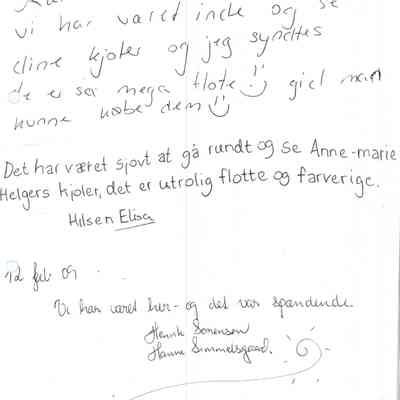 vi har været inde og se
dine kjoler og jeg syndtes
de er ser mega flote :) gid man
kunne købe dem :)
Det har været sjovt at gå rundt og se Anne-marie
Helgers kjoler, det er utrolig flotte og farverige.
Hilsen Elisa
12 feb 09
Vi har været her - og det var spændende.
Henrik Sørensen
Hanne Simmelsgaard.